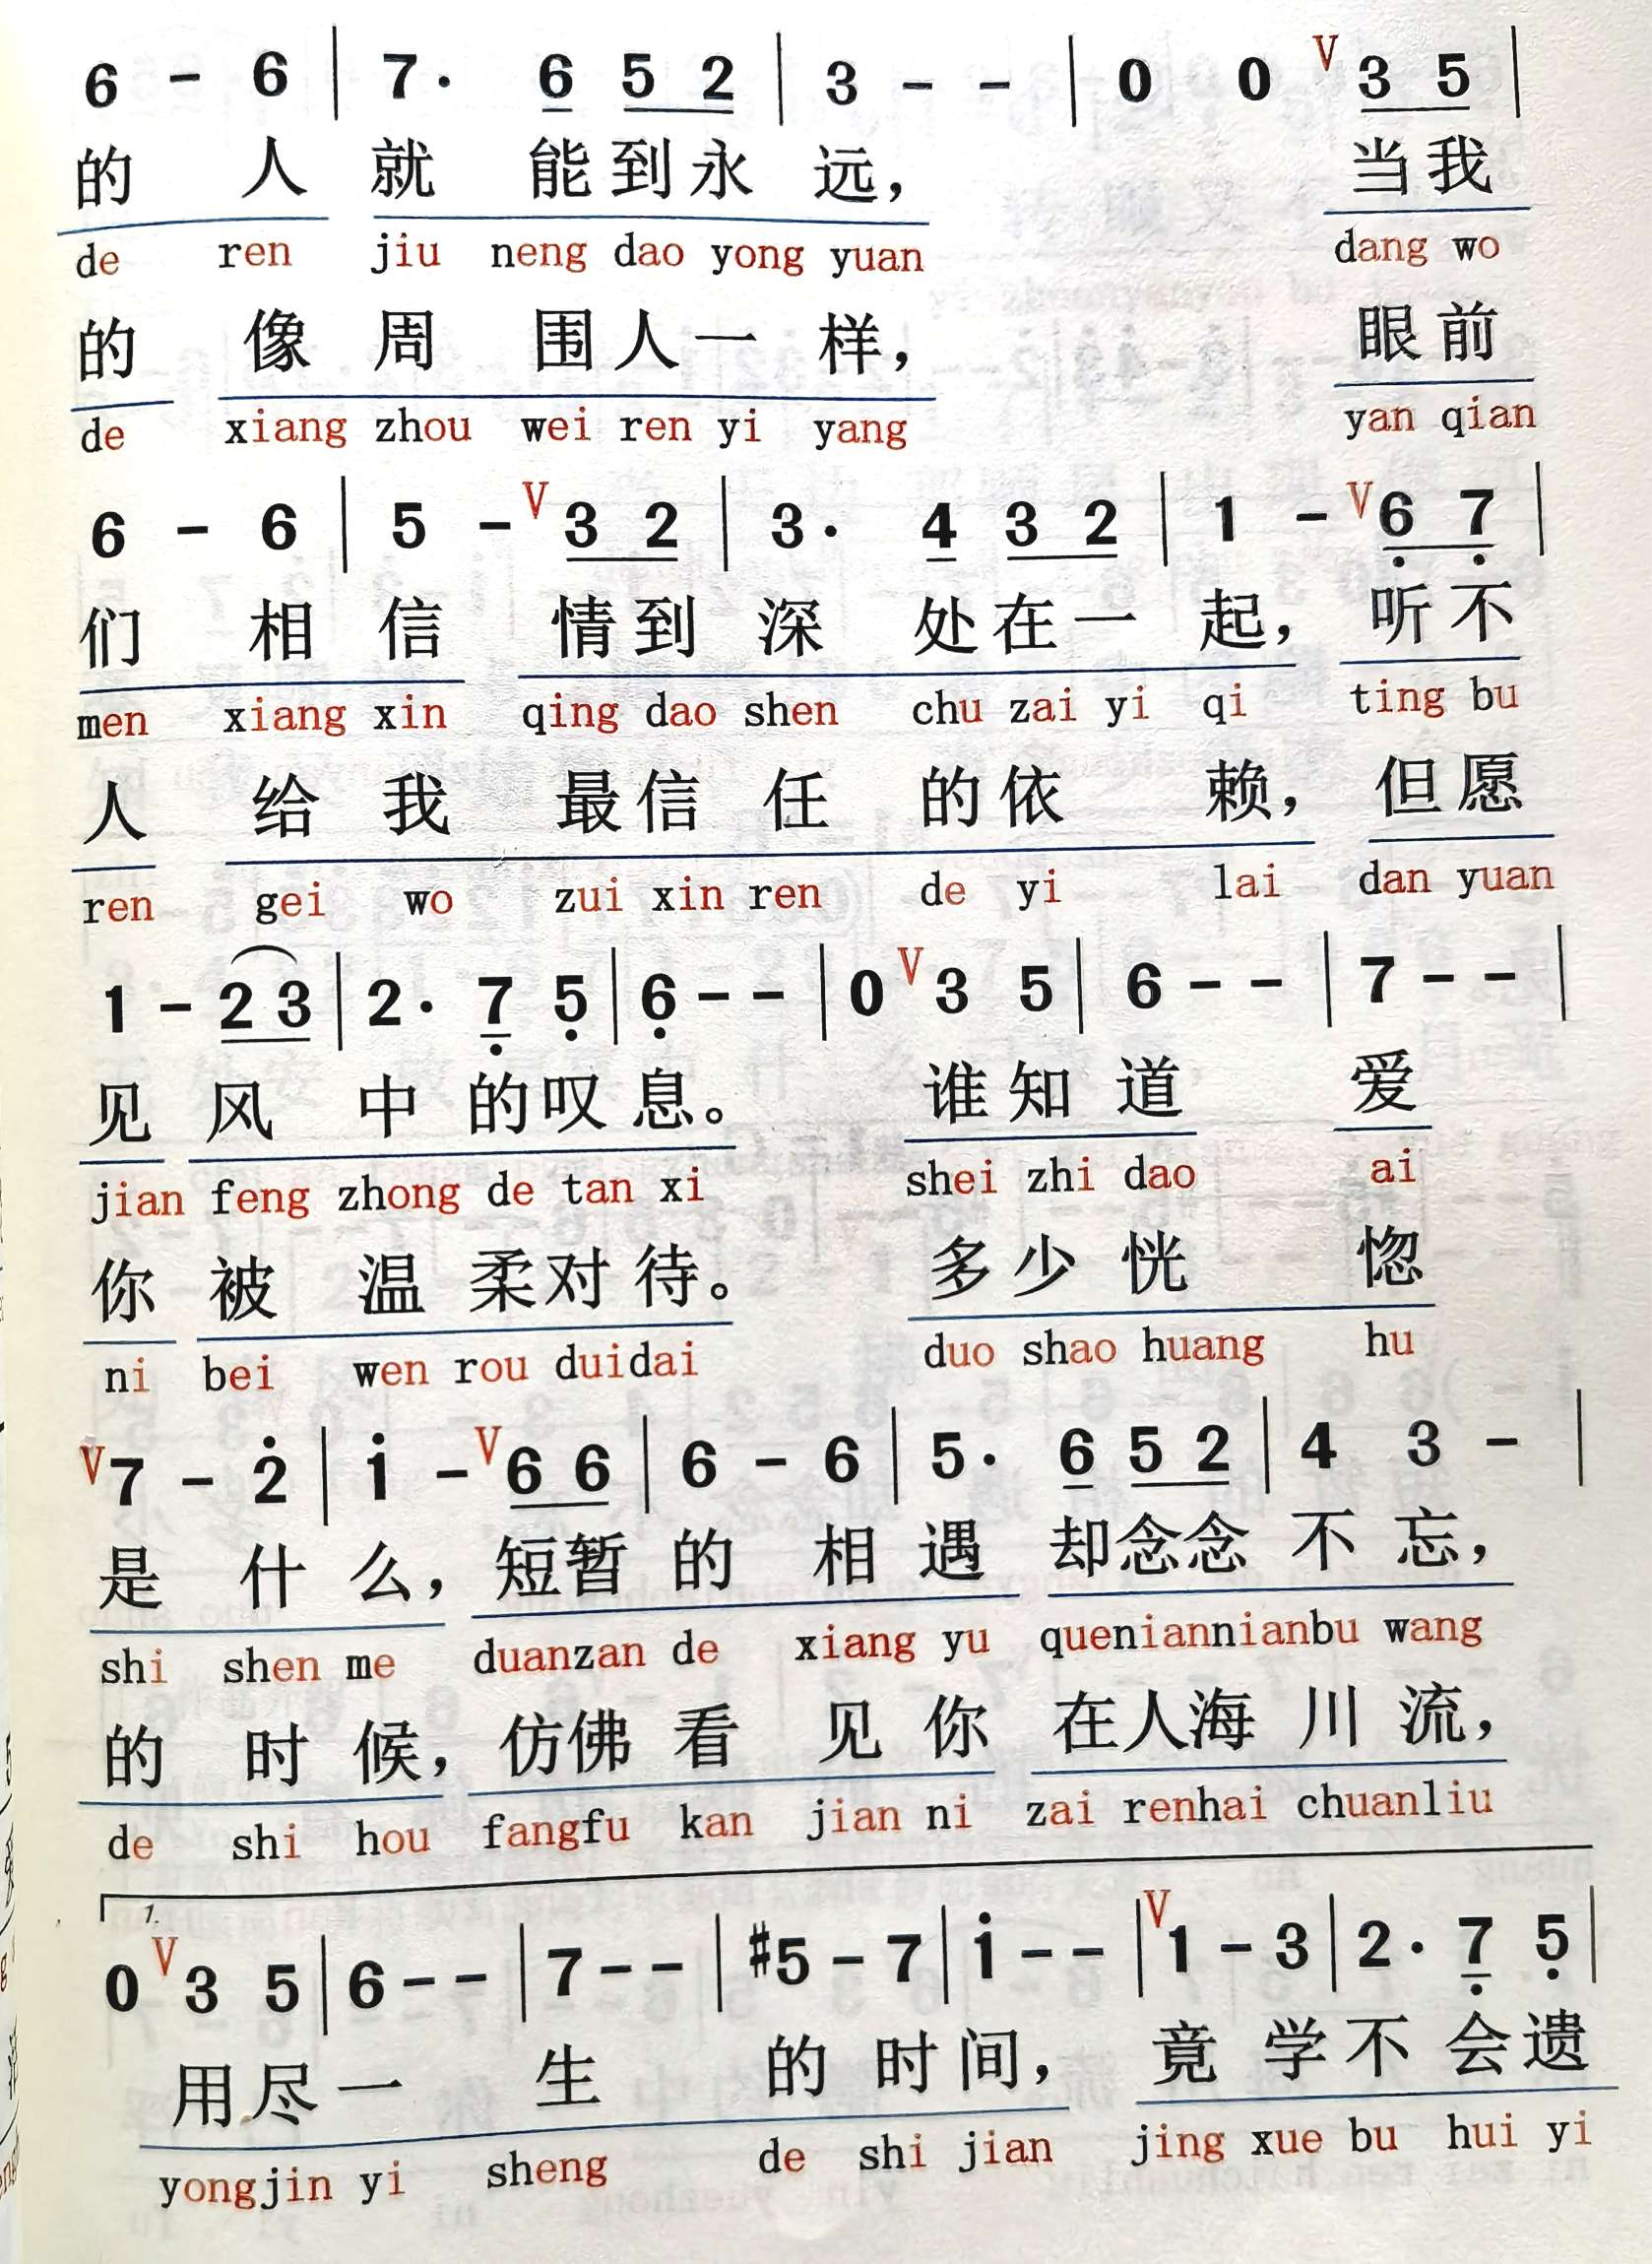 6 - 6 | 7· 6 5 2 | 3 - - | 0 0 V 3 5 |
的 人 就 能到永 远, 当我
de ren jiu neng dao yong yuan dang wo
的 像 周 围人一 样, 眼前
de xiang zhou wei ren yi yang yan qian
6 - 6 | 5 - V 3 2 | 3· 4 3 2 | 1 - V 6̣ 7̣ |
们 相 信 情到 深 处在一 起, 听不
men xiang xin qing dao shen chu zai yi qi ting bu
人 给 我 最信 任 的依 赖, 但愿
ren gei wo zui xin ren de yi lai dan yuan
1 - 2 3 | 2· 7̣ 5̣ | 6̣ - - | 0 V 3 5 | 6 - - | 7 - - |
见 风 中 的叹 息。 谁知 道 爱
jian feng zhong de tan xi shei zhi dao ai
你 被 温 柔对 待。 多少 恍 惚
ni bei wen rou duidai duo shao huang hu
V 7 - 2̇ | 1̇ - V 6 6 | 6 - 6 | 5· 6 5 2 | 4 3 - |
是 什 么, 短暂 的 相 遇 却念念 不 忘,
shi shen me duanzan de xiang yu queniannianbu wang
的 时 候, 仿佛 看 见 你 在人海 川 流,
de shi hou fangfu kan jian ni zai renhai chuanliu
1.
0 V 3 5 | 6 - - | 7 - - | #5 - 7 | 1̇ - - | V 1 - 3 | 2· 7̣ 5̣ |
用尽一 生 的 时 间, 竟 学 不 会遗
yongjin yi sheng de shi jian jing xue bu hui yi